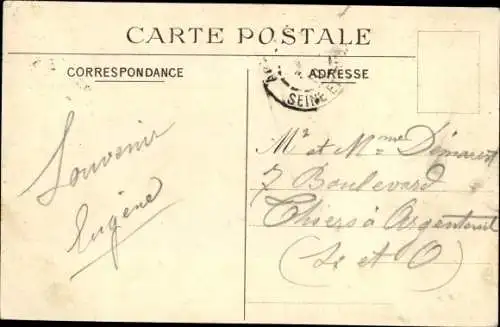 CARTE POSTALE
CORRESPONDANCE
ADRESSE
SEINE ET
Souvenir
Eugène
Mr et Mme Démarest
7 Boulevard
Thiers à Argenteuil
(S. et O)